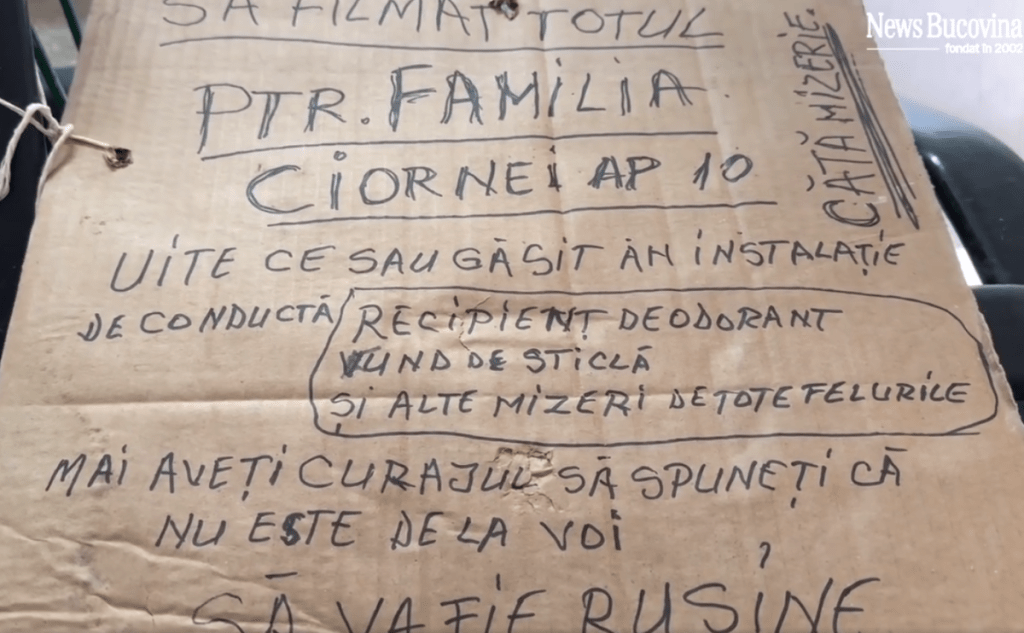 SĂ FILMAT TOTUL
PTR. FAMILIA
CIORNEI AP 10
CĂTĂ MIZERIE.
UITE CE SAU GĂSIT ÂN INSTALAȚIE
DE CONDUCTĂ RECIPIENȚ DEODORANT
FUND DE STICLĂ
ȘI ALTE MIZERI DE TOTE FELURILE
MAI AVEȚI CURAJUL SĂ SPUNEȚI CĂ
NU ESTE DE LA VOI
SĂ VA FIE RUȘINE
News Bucovina
fondat în 2002